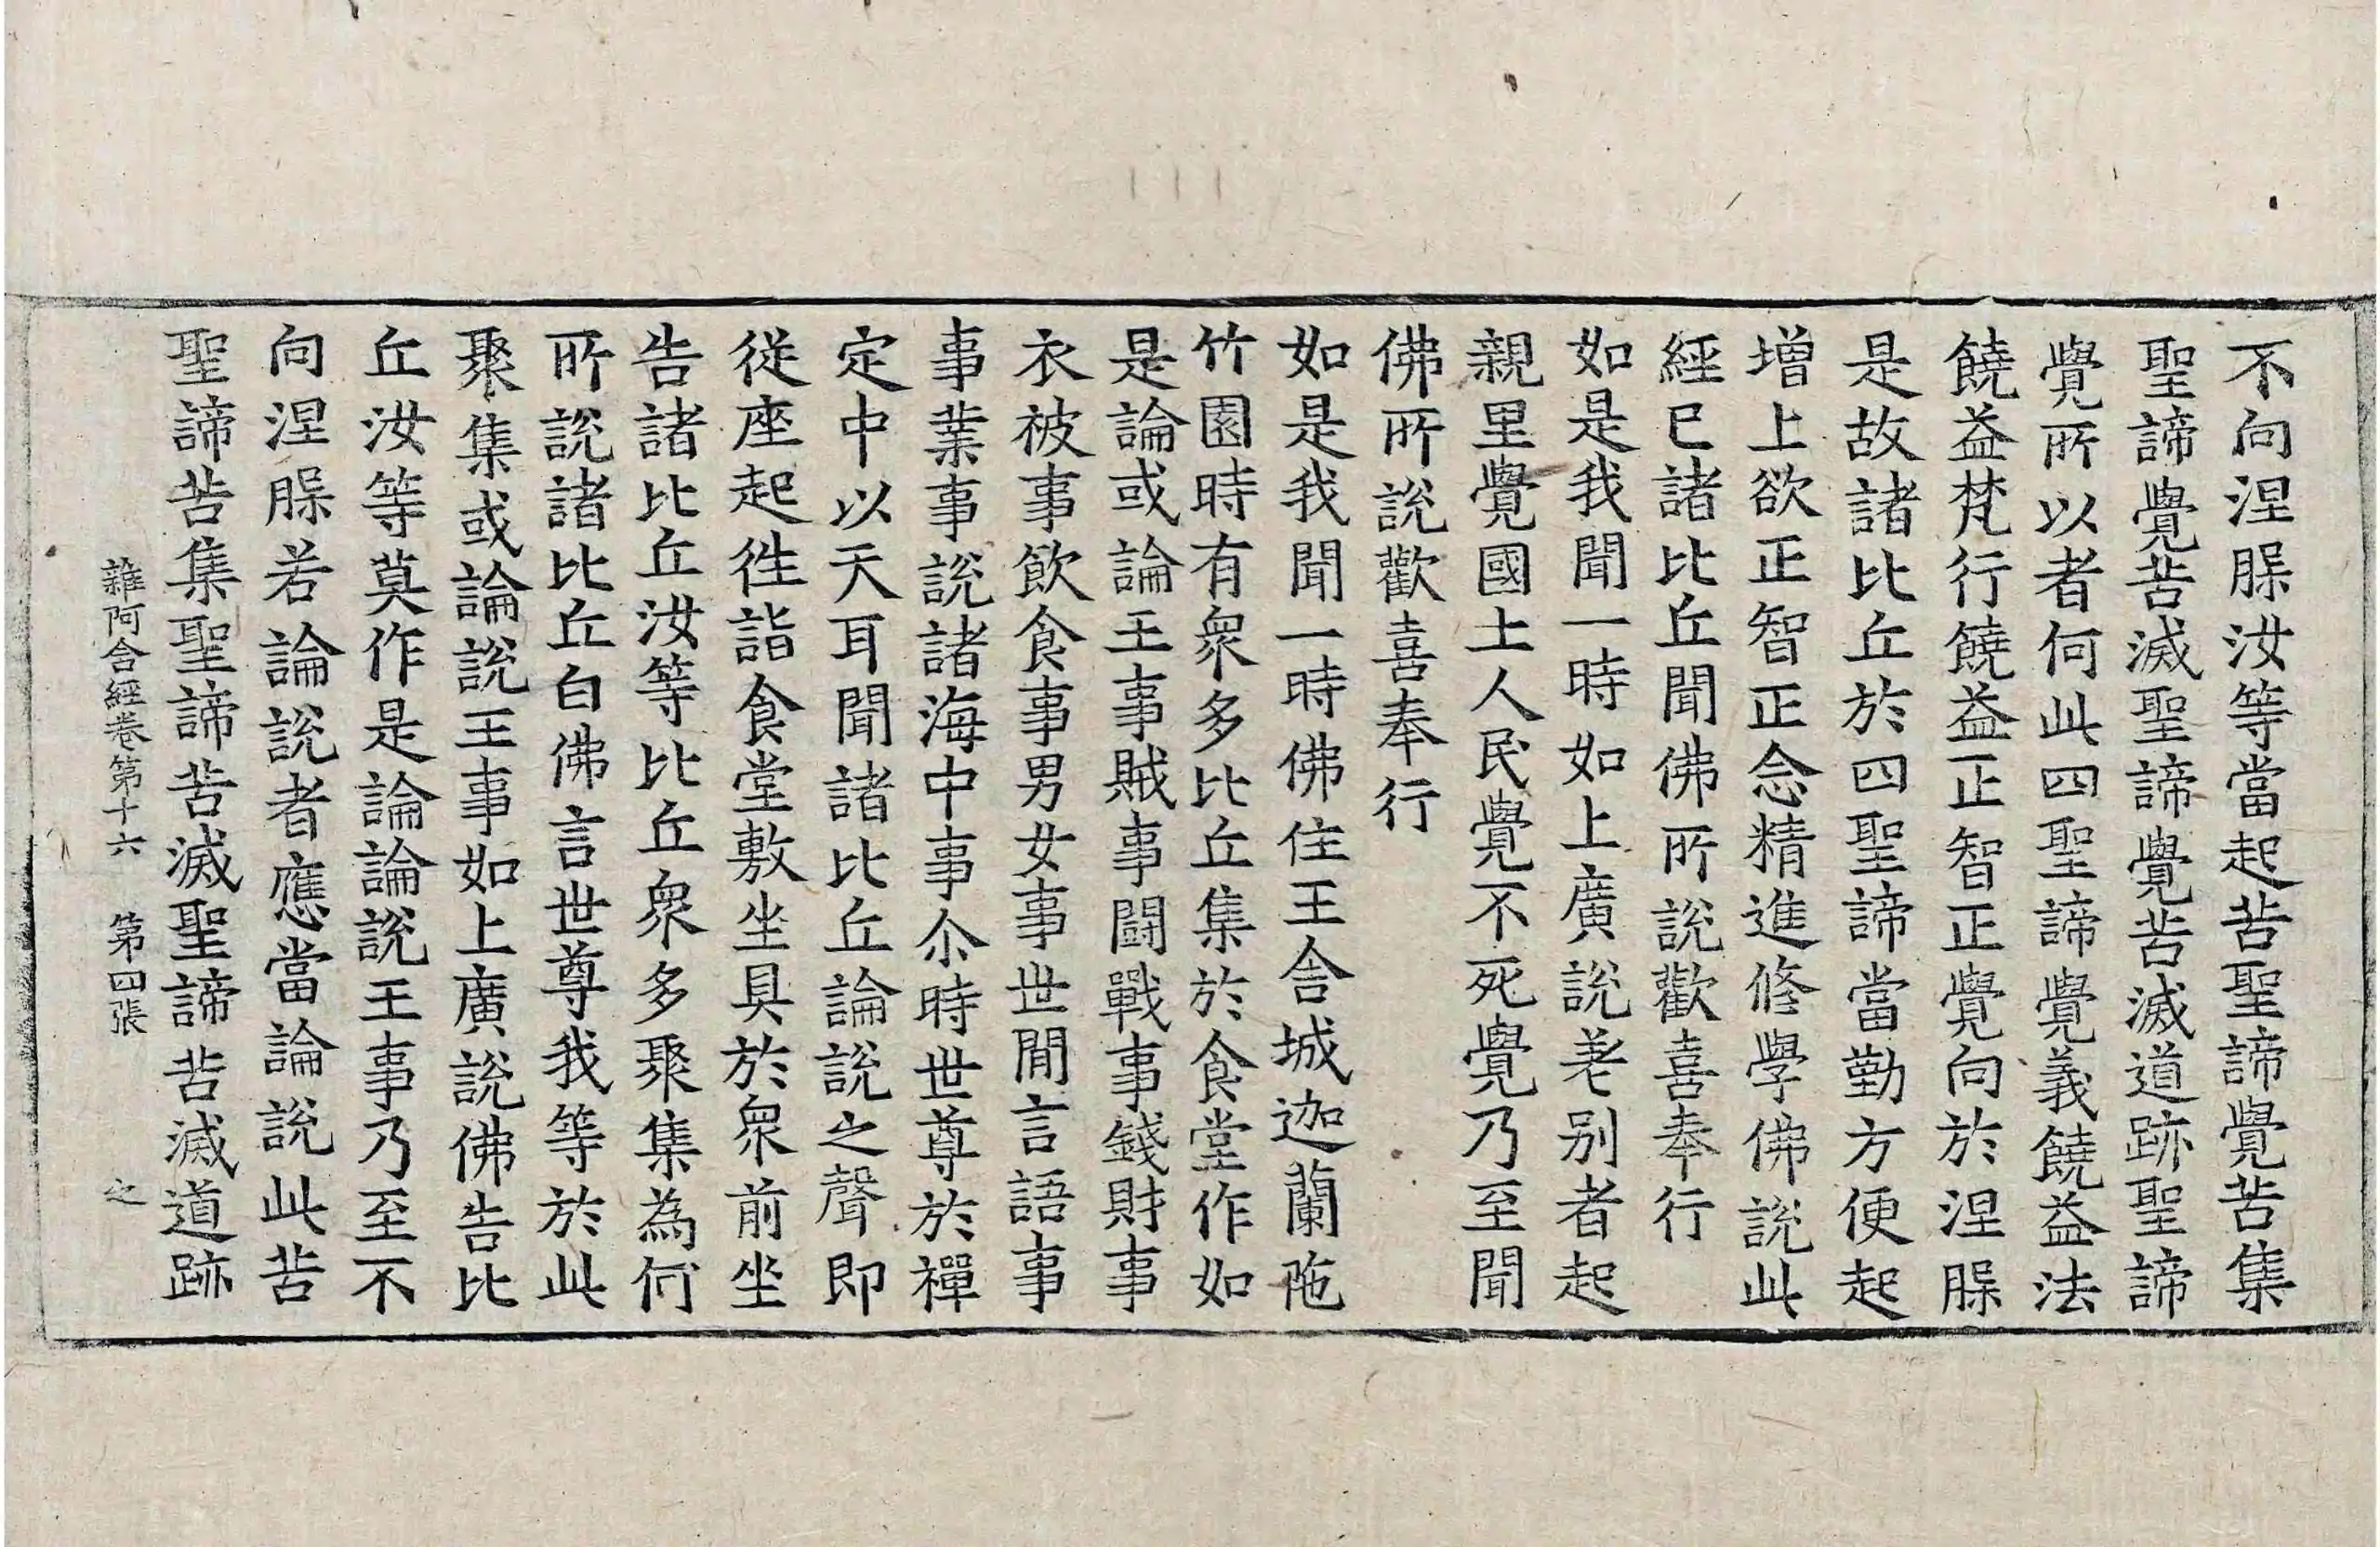 不向涅槃汝等當起苦聖諦覺苦集
聖諦覺苦滅聖諦覺苦滅道跡聖諦
覺所以者何此四聖諦覺義饒益法
饒益梵行饒益正智正覺向於涅槃
是故諸比丘於四聖諦當勤方便起
增上欲正智正念精進修學佛說此
經已諸比丘聞佛所說歡喜奉行
如是我聞一時如上廣說差別者起
親里覺國土人民覺不死覺乃至聞
佛所說歡喜奉行
如是我聞一時佛住王舍城迦蘭陁
竹園時有衆多比丘集於食堂作如
是論或論王事賊事鬪戰事錢財事
衣被事飲食事男女事世閒言語事
事業事說諸海中事尒時世尊於禪
定中以天耳聞諸比丘論說之聲即
從座起往詣食堂敷坐具於衆前坐
告諸比丘汝等比丘衆多聚集為何
所說諸比丘白佛言世尊我等於此
聚集或論說王事如上廣說佛告比
丘汝等莫作是論論說王事乃至不
向涅槃若論說者應當論說此苦
聖諦苦集聖諦苦滅聖諦苦滅道跡
雜阿含經卷第十六 第四張 之